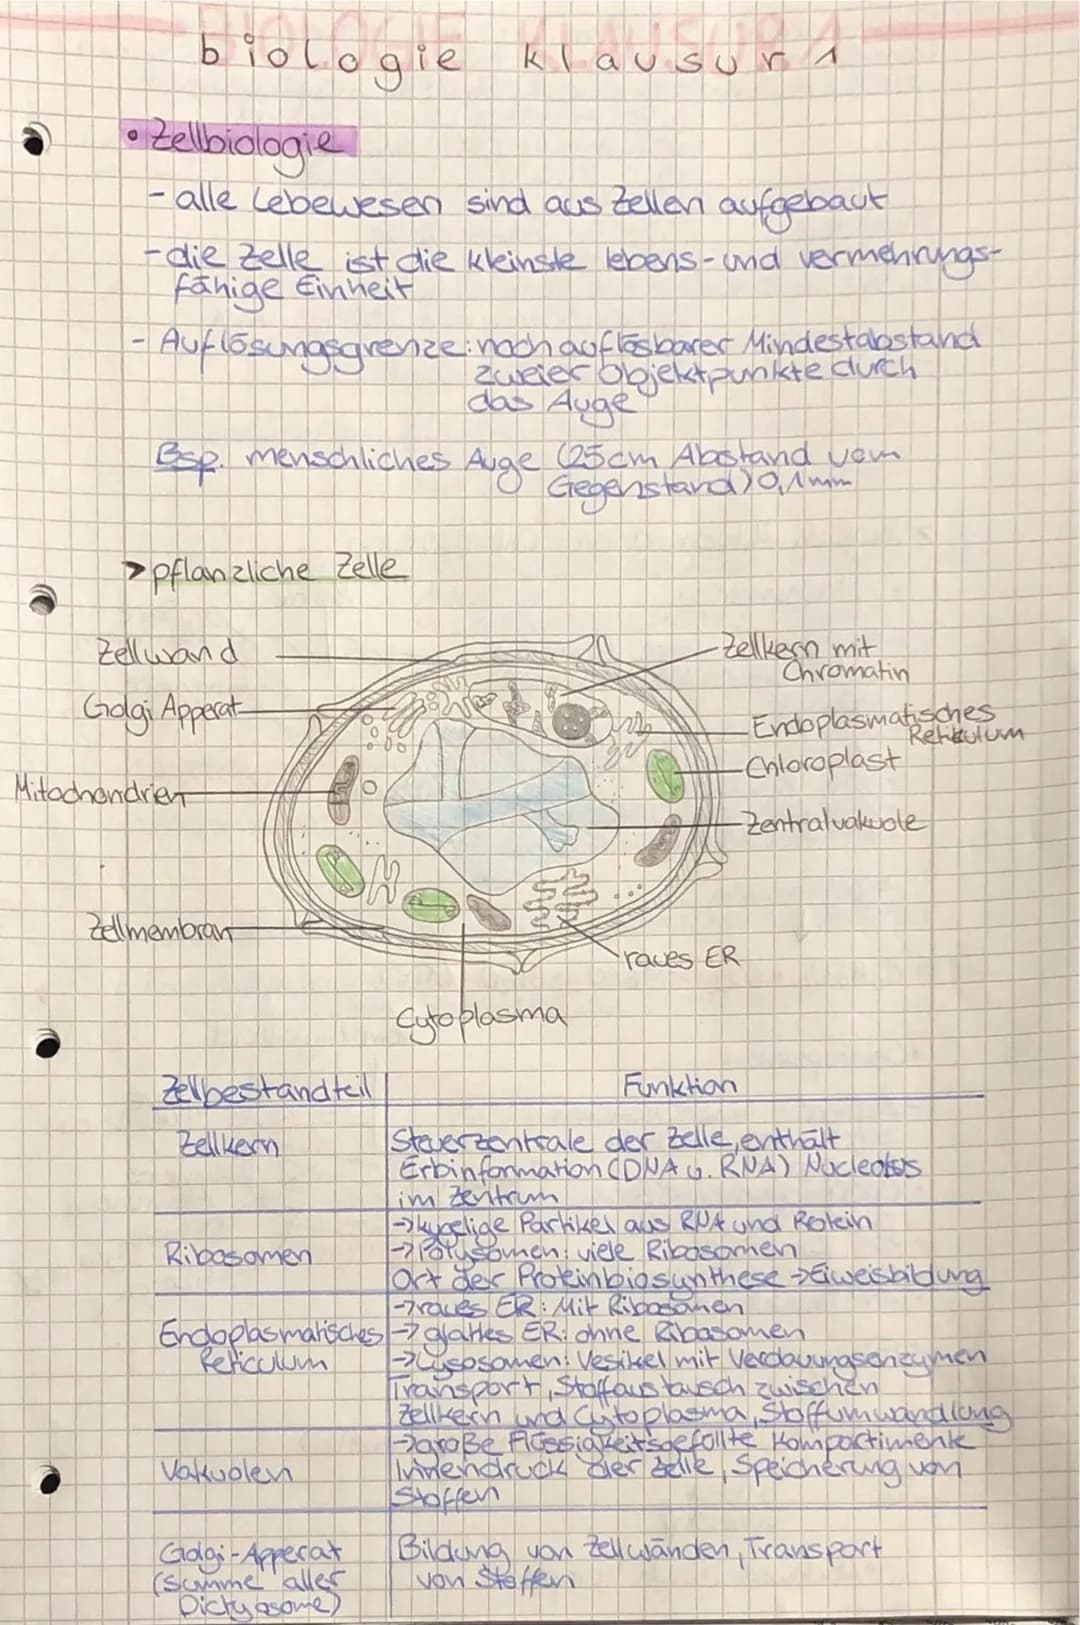 BIOLOGIE KLAUSUR 1
biologie klausur 1
• Zellbiologie
- alle Lebewesen sind aus Zellen aufgebaut
- die Zelle ist die kleinste lebens- und vermehrungs-
fähige Einheit
- Auflösungsgrenze: noch auflösbarer Mindestabstand
zweier Objektpunkte durch
das Auge
Bsp. menschliches Auge (25cm Abstand vom
Gegenstand) 0,1mm
> pflanzliche Zelle
Zellwand
Zellkern mit
Chromatin
Golgi Apperat
Endoplasmatisches
Retikulum
Chloroplast
Mitochondrien
Zentralvakuole
Zellmembran
raues ER
Cytoplasma
Zellbestandteil Funktion
Zellkern
Steuerzentrale der Zelle, enthält
Erbinformation (DNA u. RNA) Nucleolus
im Zentrum
Ribosomen
→ kugelige Partikel aus RNA und Protein
→ Polysomen: viele Ribosomen
Ort der Proteinbiosynthese → Eiweisbildung
Endoplasmatisches
Reticulum
→ raues ER: Mit Ribosomen
→ glattes ER: ohne Ribosomen
→ Lysosomen: Vesikel mit Verdauungsenzymen
Transport, Stoffaustausch zwischen
Zellkern und Cytoplasma, Stoffumwandlung
Vakuolen
→ große Flüssigkeitsgefüllte Kompartimente
Innendruck der Zelle, Speicherung von
Stoffen
Golgi-Apperat
(Summe aller
Dictyosome)
Bildung von Zellwänden, Transport
von Stoffen